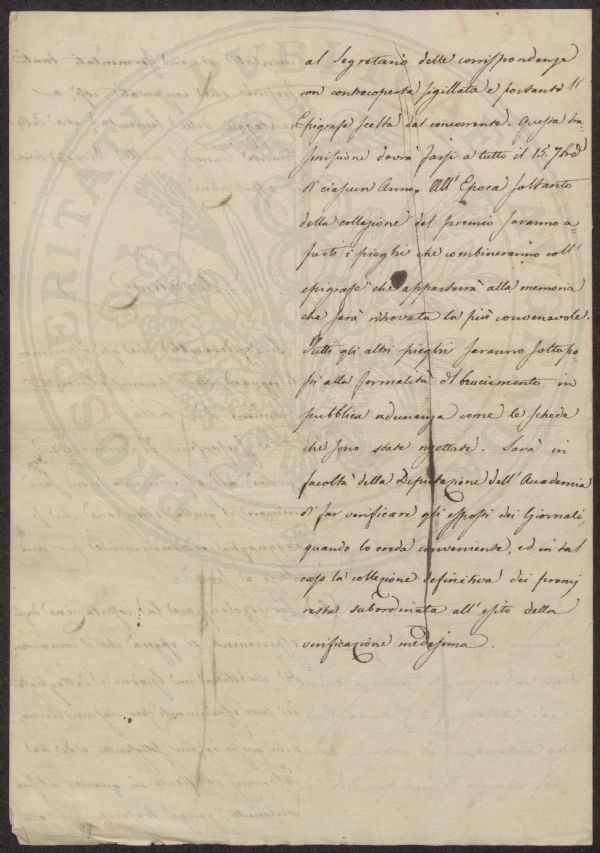 al Segretario delle corrispondenze
con controcoperta sigillata e portante l'
Epigrafe scelta dal concorrente. Questa tra=
smissione dovrà farsi a tutto il 15. 7bre
di ciascun Anno. All' Epoca soltanto
della collazione del premio saranno a=
perti i pieghi che combineranno coll'
epigrafe che apparterrà alla memoria
che sarà ritrovata la più convenevole.
Tutti gli altri pieghi saranno sottopo=
sti alla formalità di bruciamento in
pubblica adunanza come le schede
che sono state rigettate. Sarà in
facoltà della Deputazione dell' Accademia
di far verificare gli esposti dei Giornali,
quando lo creda conveniente, ed in tal
caso la collezione definitiva dei premj
resta subordinata all' esito della
verificazione medesima.